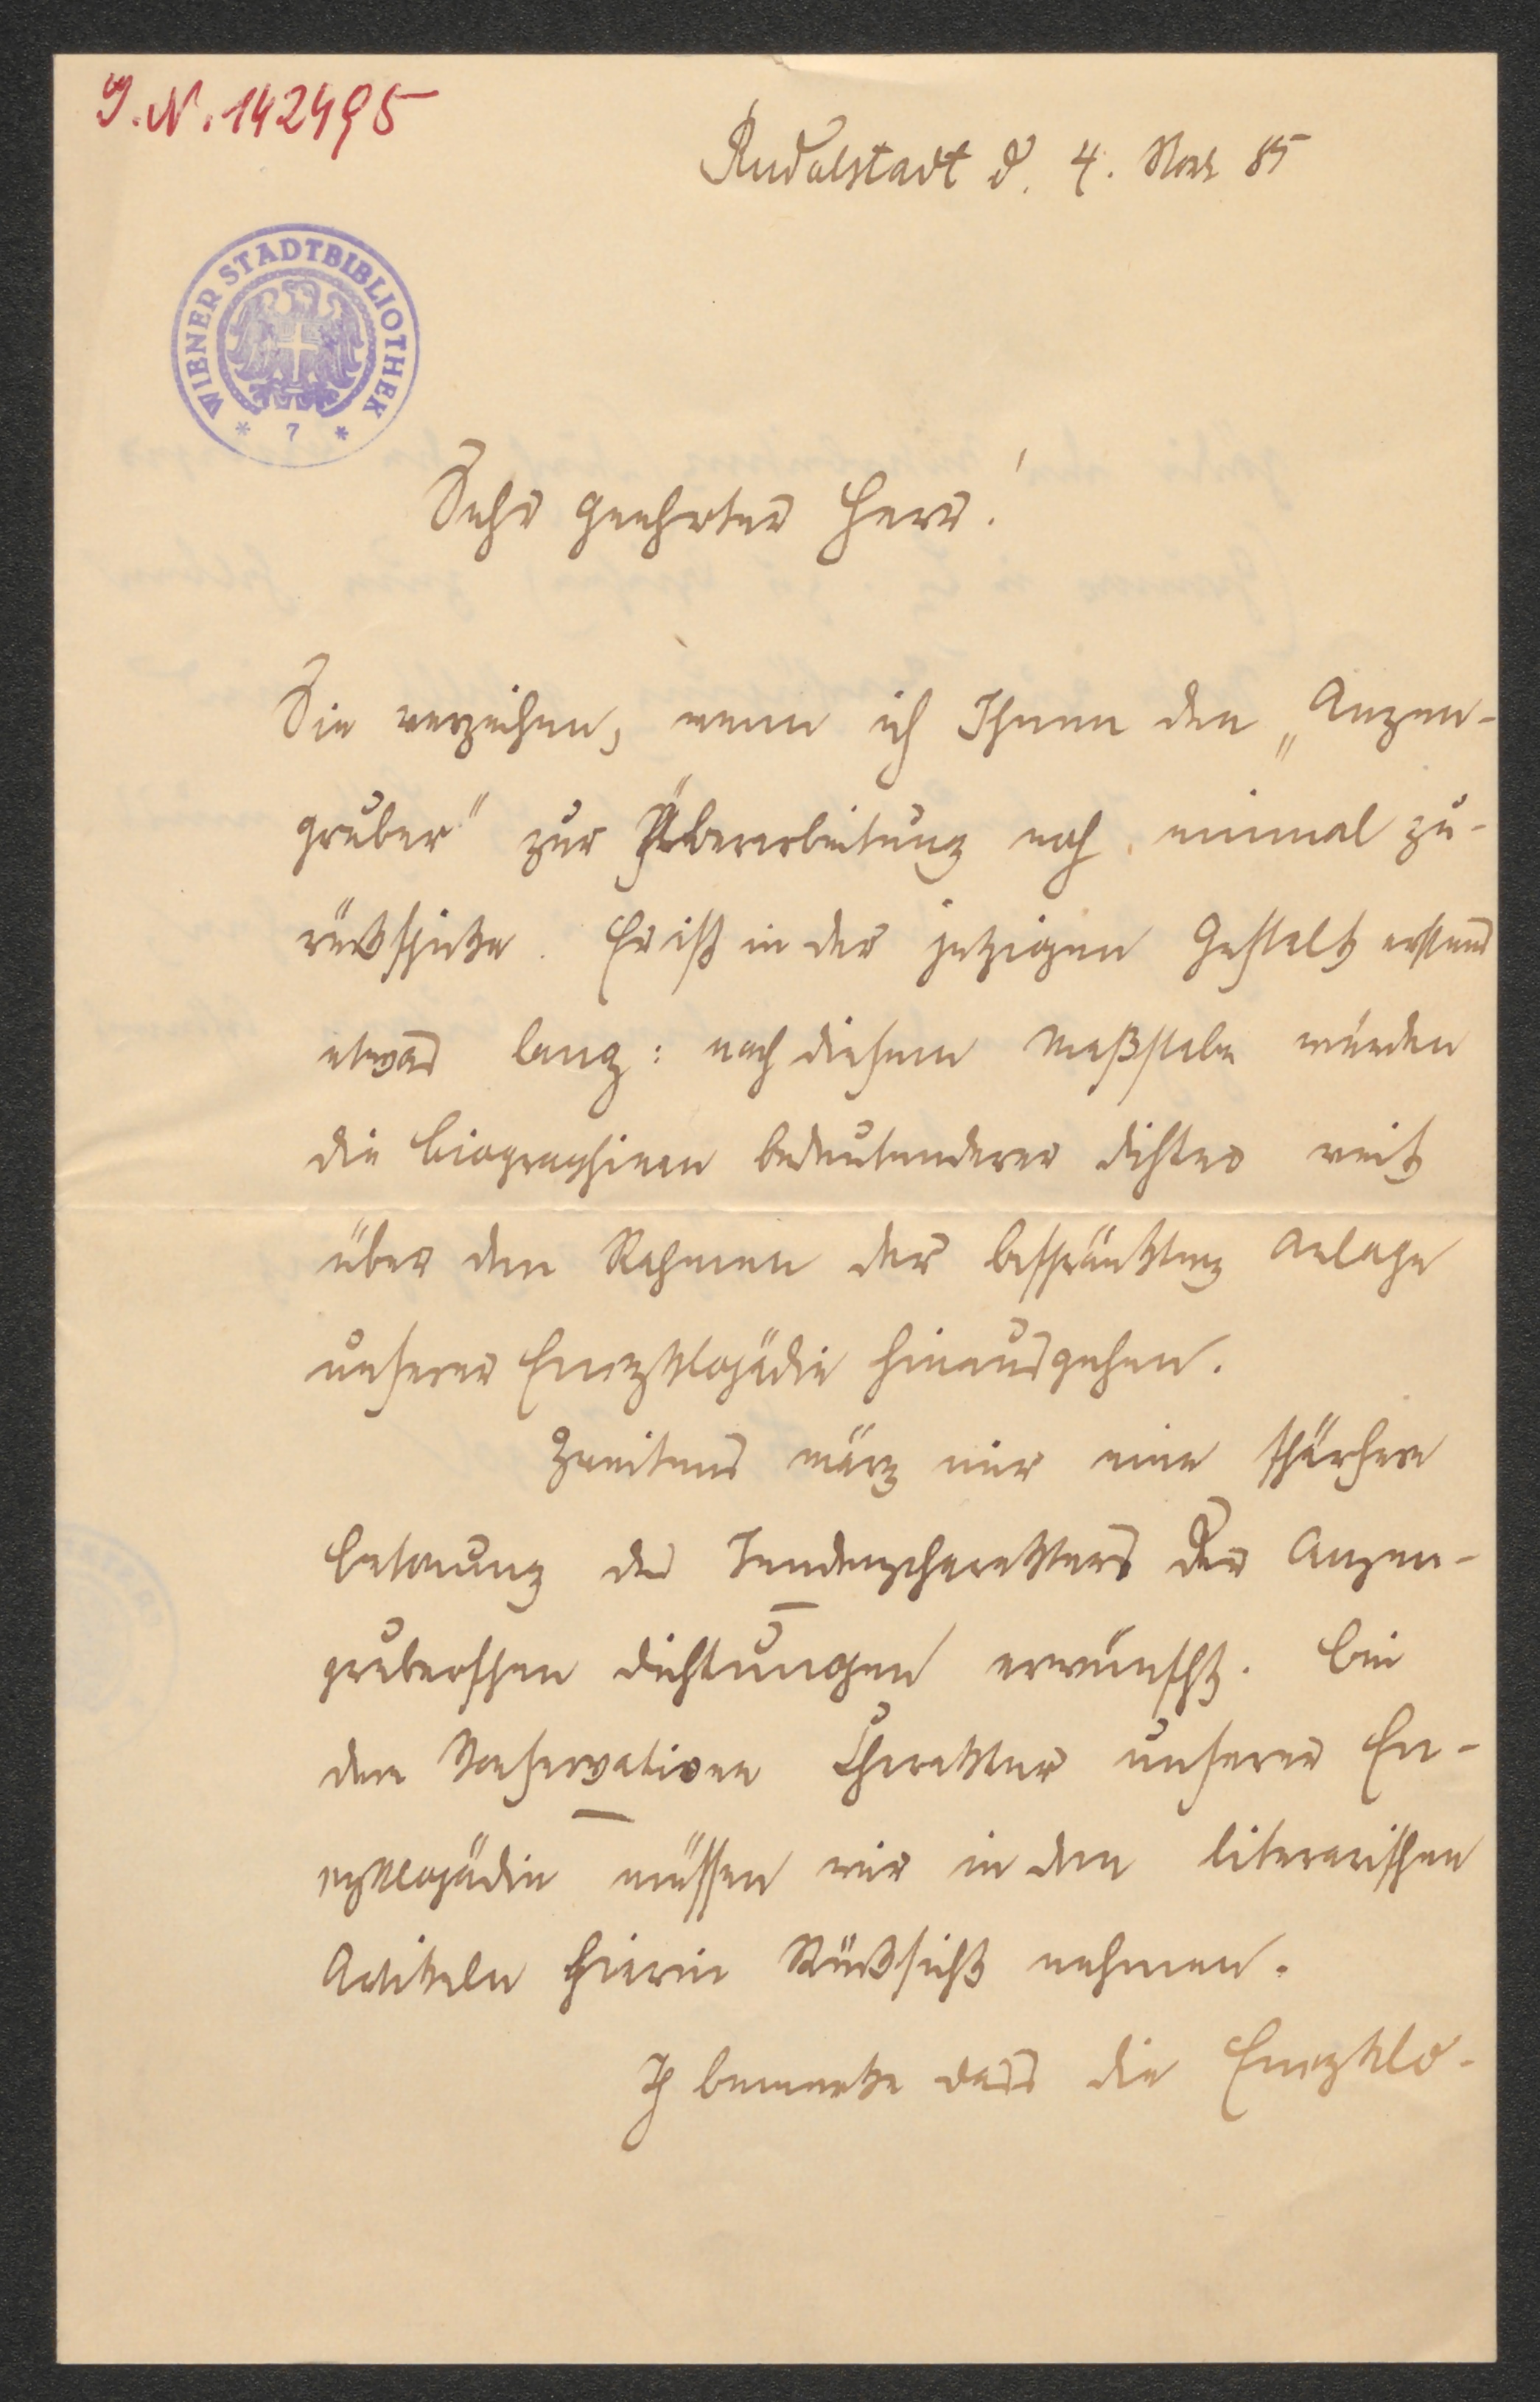 J. N. 142495
Rudolstadt d. 4. Nov 85
WIENER STADTBIBLIOTHEK
* 7 *
Sehr geehrter Herr!
Sie verzeihen, wenn ich Ihnen den „Anzen-
gruber" zur Überarbeitung noch einmal zu-
rückschicke. Er ist in der jetzigen Gestalt erstens
etwas lang: nach diesem Maßstabe würden
die Biographieen bedeutenderer Dichter weit
über den Rahmen der beschränkten Anlage
unserer Encyklopädie hinausgehen.
Zweitens wäre mir eine schärfere
Betonung des Tendenzcharakters der Anzen-
gruberschen Dichtungen erwünscht. Bei
dem konservativen Charakter unserer En-
cyklopädie müssen wir in den literarischen
Artikeln hierin Rücksicht nehmen.
Ich bemerke dass die Encyklo-